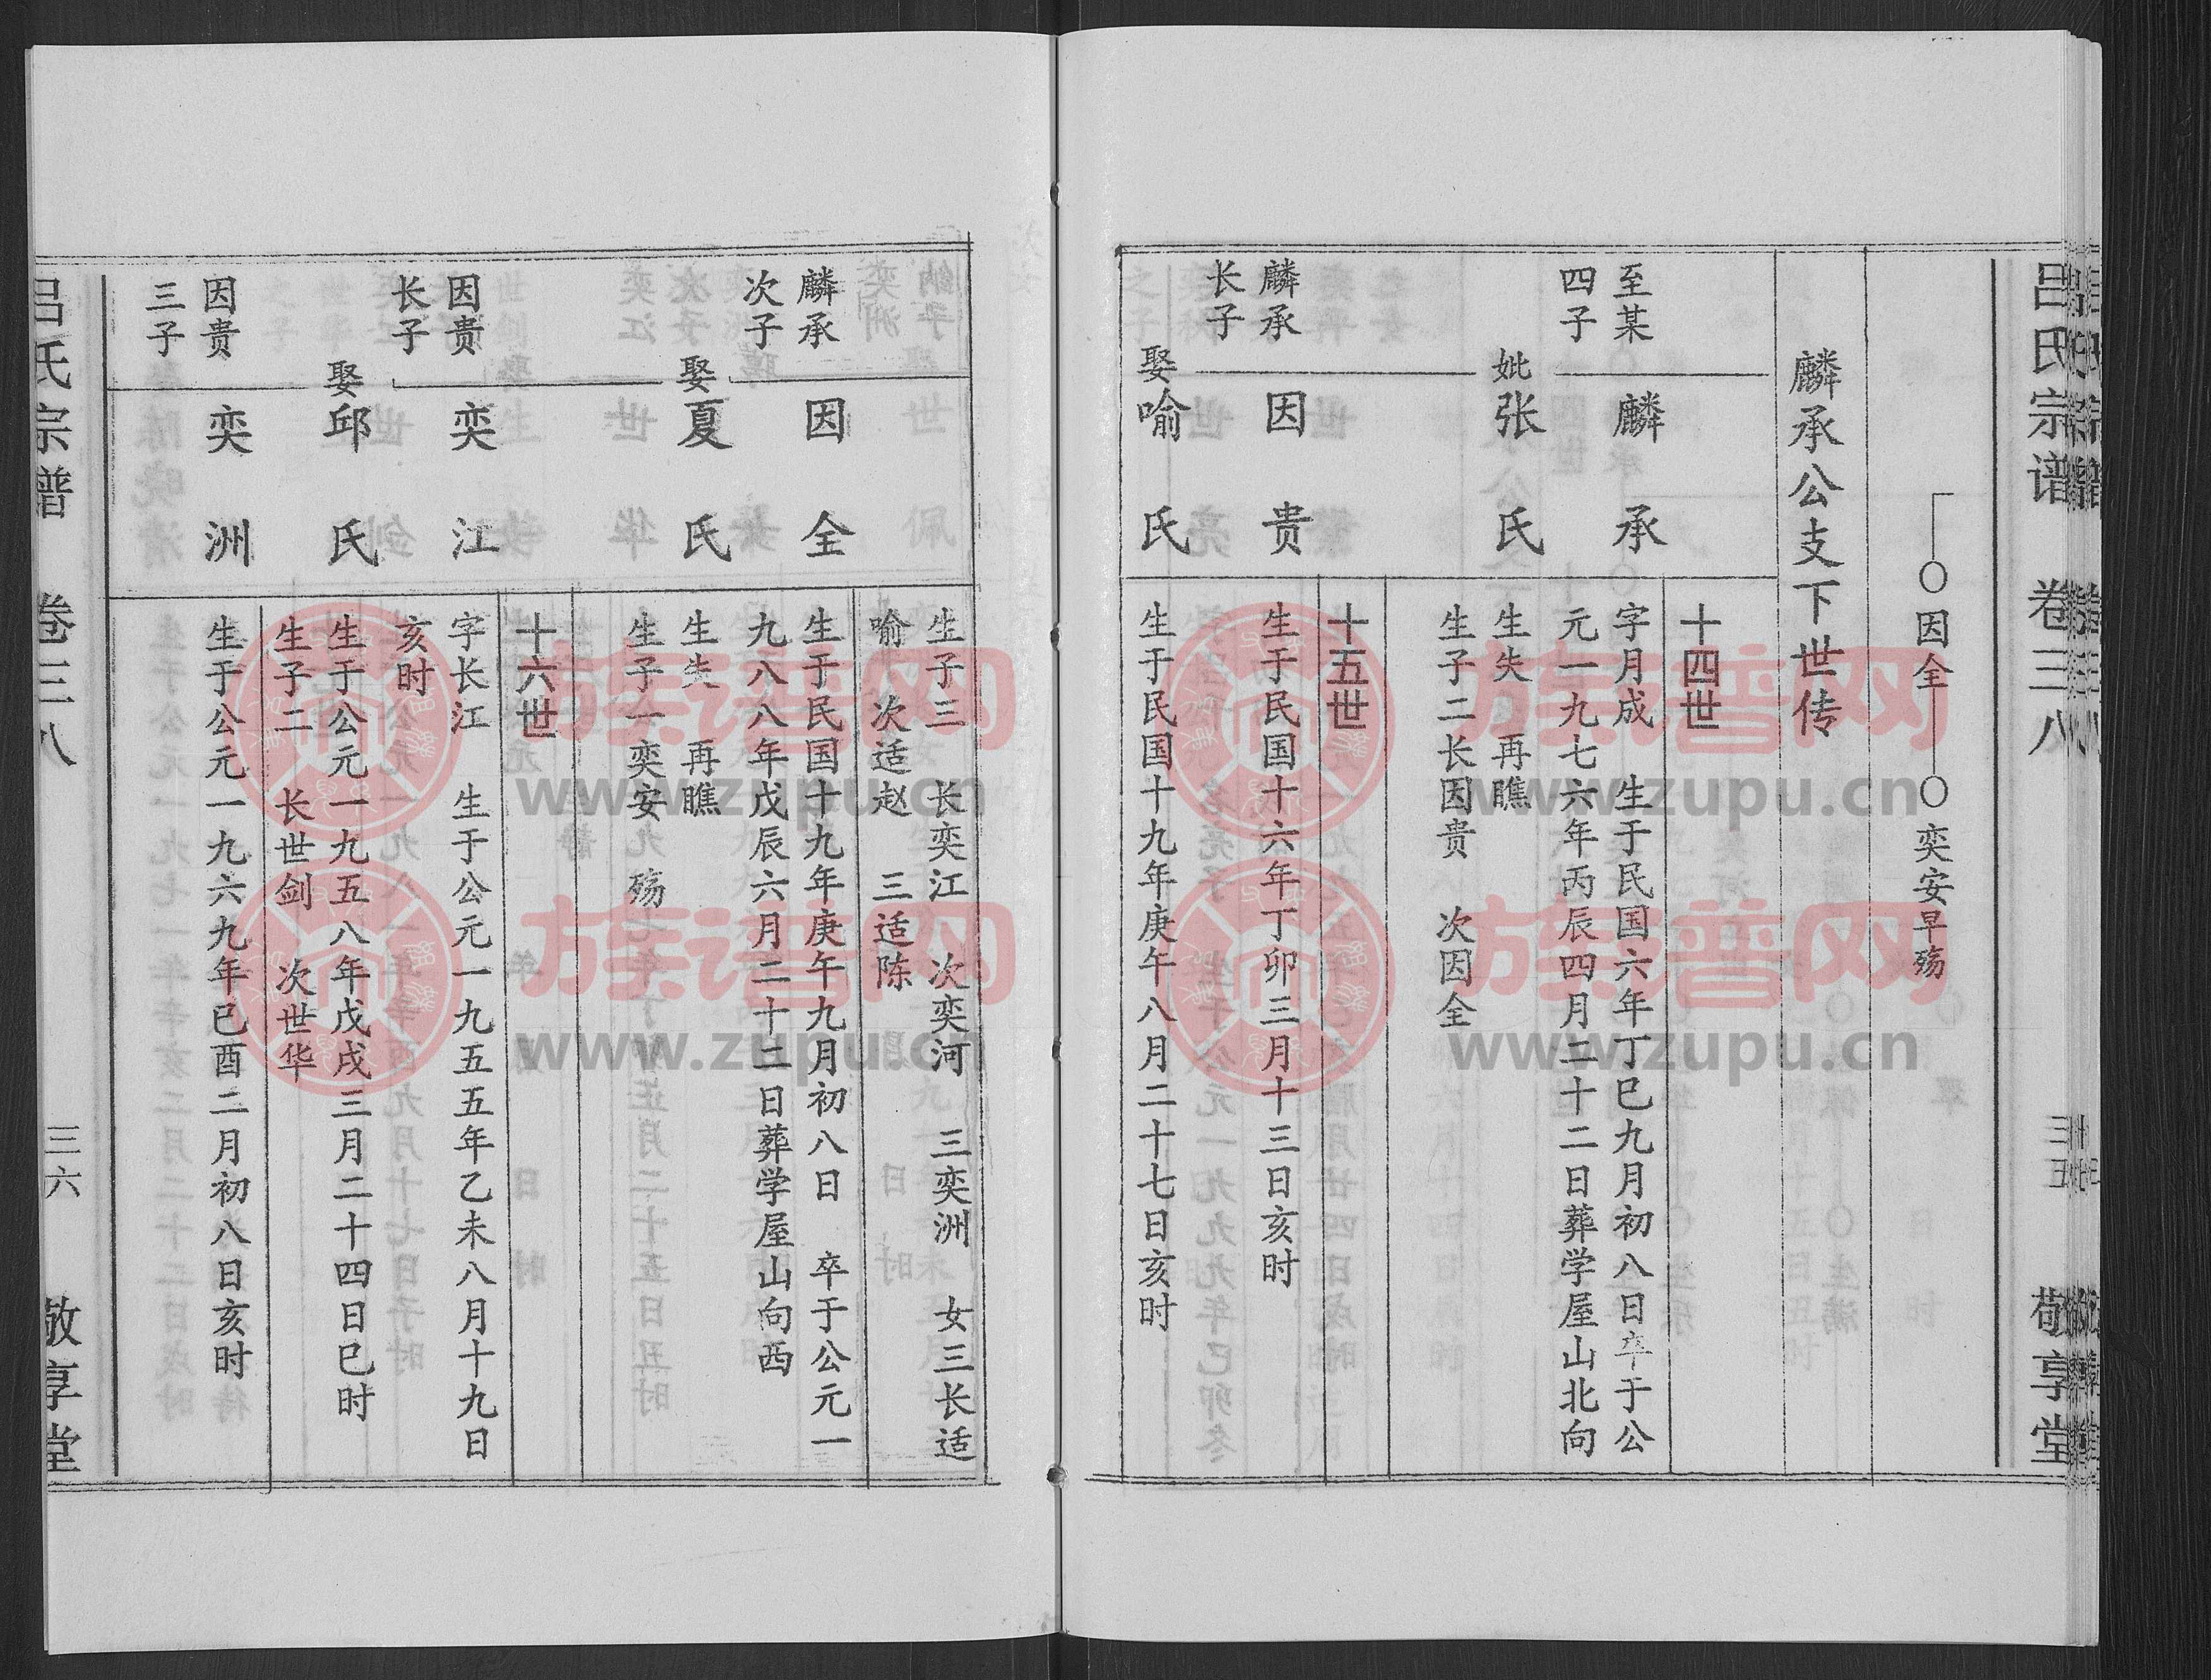 吕氏宗谱 卷三八 三五 敬享堂
〇因全——〇奕安早殇
麟承公支下世传
十四世
至某
四子
麟承
字月成 生于民国六年丁巳九月初八日卒于公
元一九七六年丙辰四月二十二日葬学屋山北向
妣张氏
生失 再瞧
生子二长因贵 次因全
十五世
麟承
长子
因贵
生于民国十六年丁卯三月十三日亥时
娶喻氏
生于民国十九年庚午八月二十七日亥时
生子三 长奕江 次奕河 三奕洲 女三长适
喻 次适赵 三适陈
麟承
次子
因全
生于民国十九年庚午九月初八日 卒于公元一
九八八年戊辰六月二十二日葬学屋山向西
娶夏氏
生失 再瞧
生子一奕安 殇
十六世
因贵
长子
奕江
字长江 生于公元一九五五年乙未八月十九日
亥时
娶邱氏
生于公元一九五八年戊戌三月二十四日巳时
生子二 长世剑 次世华
因贵
三子
奕洲
生于公元一九六九年已酉二月初八日亥时
吕氏宗谱 卷三八 三六 敬享堂
族谱网
www.zupu.cn
族谱网
www.zupu.cn
族谱网
www.zupu.cn
族谱网
www.zupu.cn